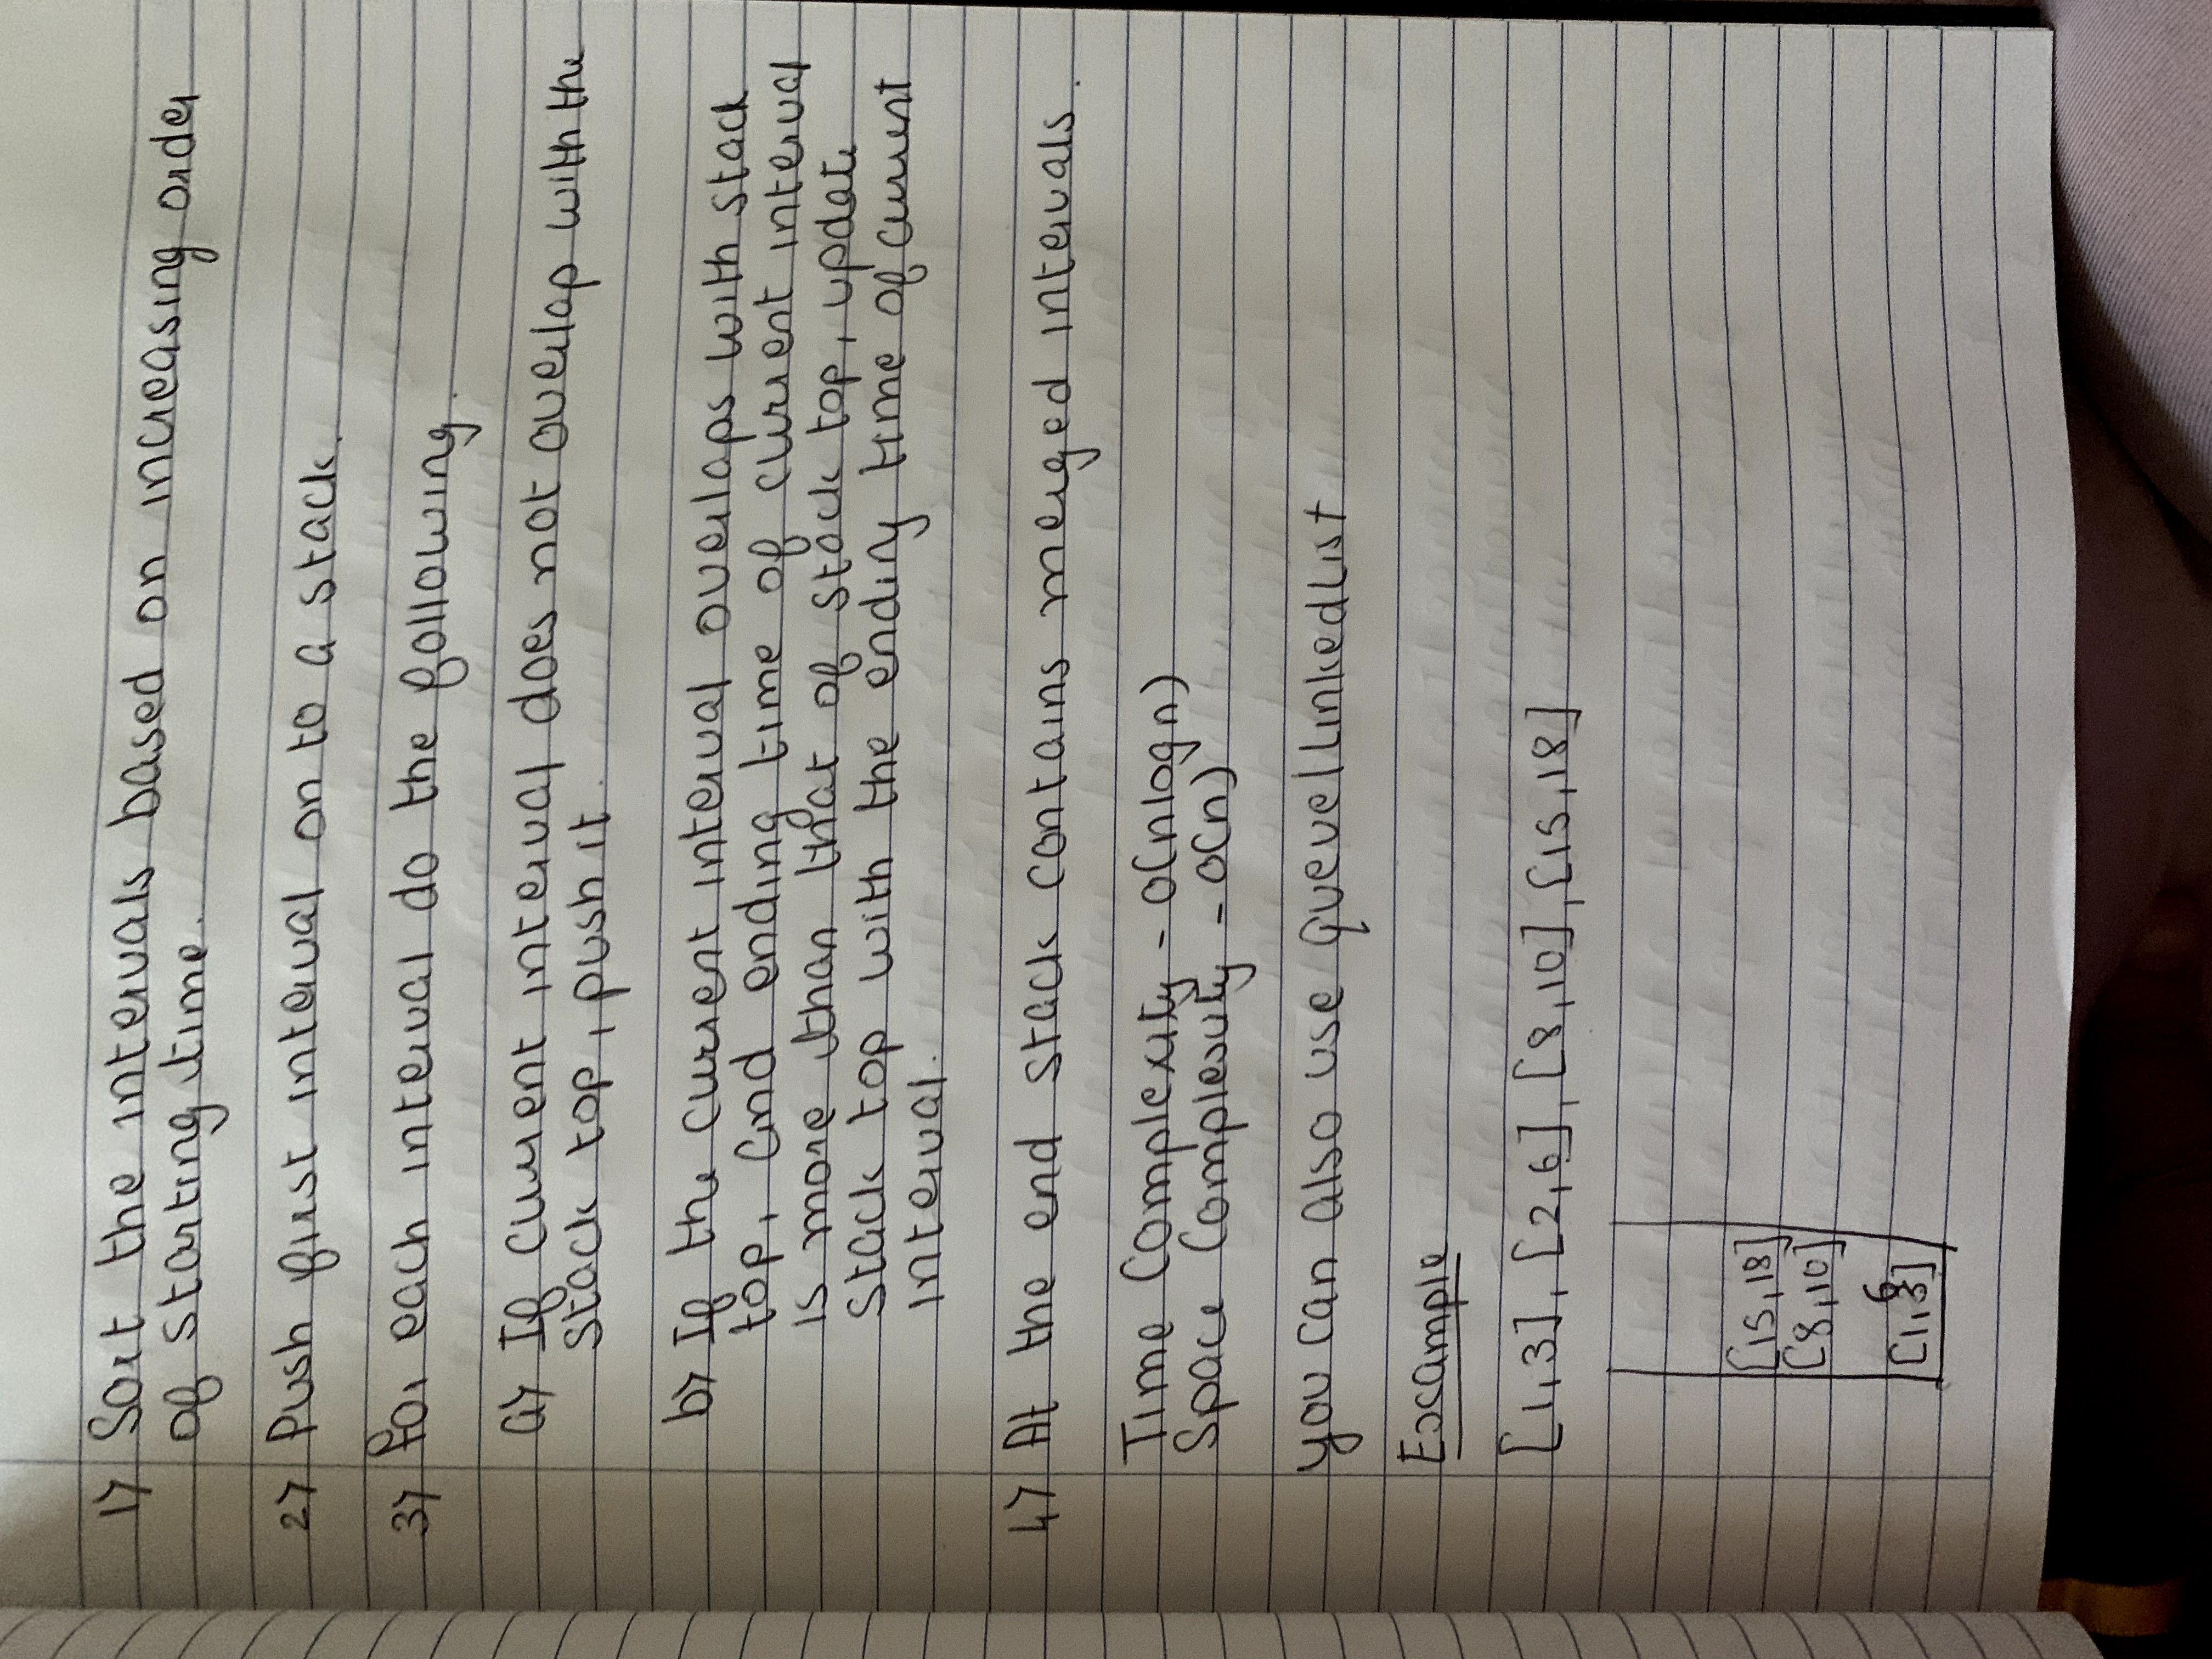 1) Sort the intervals based on increasing order
of starting time.
2) Push first interval on to a stack.
3) For each interval do the following.
a) If current interval does not overlap with the
stack top, push it.
b) If the current interval overlaps with stack
top, and ending time of current interval
is more than that of stack top, update
stack top with the ending time of current
interval.
4) At the end stack contains merged intervals.
Time Complexity - O(nlogn)
Space Complexity - O(n)
you can also use queue/LinkedList
Example
[1,3], [2,6], [8,10], [15,18]
[15,18]
[8,10]
6
[1,3]